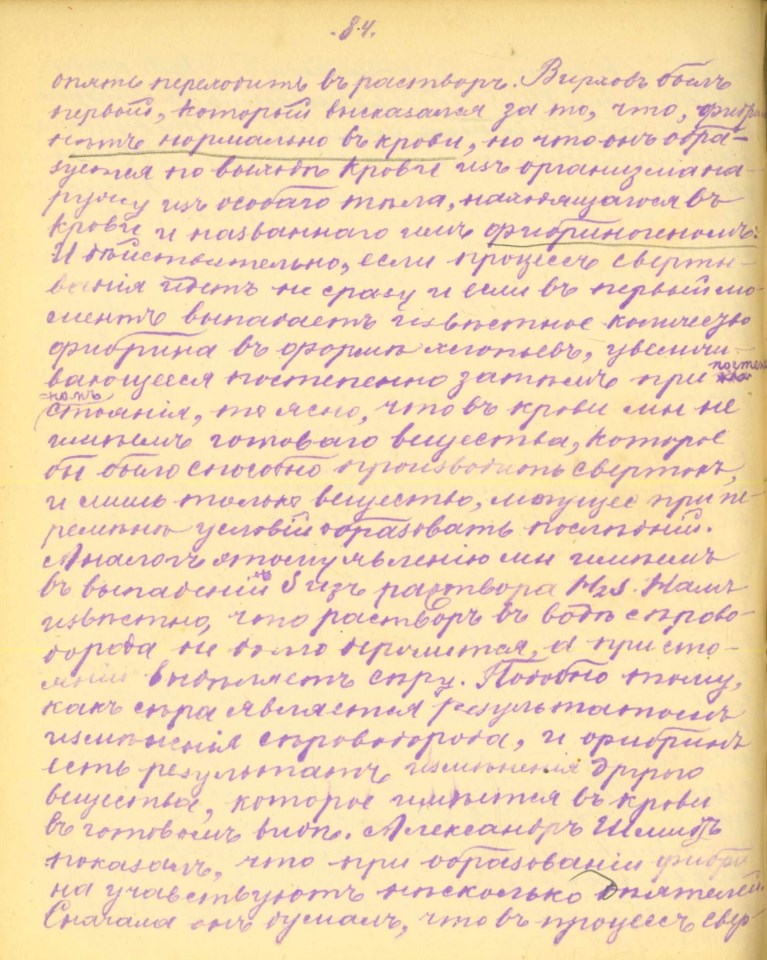 .84.
опять переходитъ въ растворъ. Вирховъ былъ
первый, который высказался за то, что,
нѣтъ нормально въ крови, но что онъ обра-
зуется по выходѣ крови изъ организма на-
ружу изъ особаго тѣла, находящагося въ
крови и названнаго имъ фибриногеномъ:
И дѣйствительно, если процессъ сверты-
ванія идетъ не сразу и если въ первый мо-
ментъ выпадаетъ извѣстное количество
фибрина въ формѣ хлопьевъ, увеличи-
вающееся постепенно затѣмъ при постеп
номъ
стояніи, то ясно, что въ крови мы не
имѣемъ готоваго вещества, которое
бы было способно производить свертокъ,
и лишь только вещество, могущее при пе-
ремѣнѣ условій образовать послѣдній.
Аналогъ этому явленію мы имѣемъ
въ выпаденіи S изъ раствора H2S. Намъ
извѣстно, что растворъ въ водѣ сѣрово-
дорода не долго хранится, а при сто-
яніи выдѣляетъ сѣру. Подобно тому,
какъ сѣра является результатомъ
измѣненія сѣроводорода, и фибринъ
есть результатъ измѣненія другого
вещества, которое имѣется въ крови
въ готовомъ видѣ. Александръ Шмидтъ
показалъ, что при образованіи фибри
на участвуютъ нѣсколько дѣятелей.
Сначала онъ думалъ, что въ процессѣ свер-